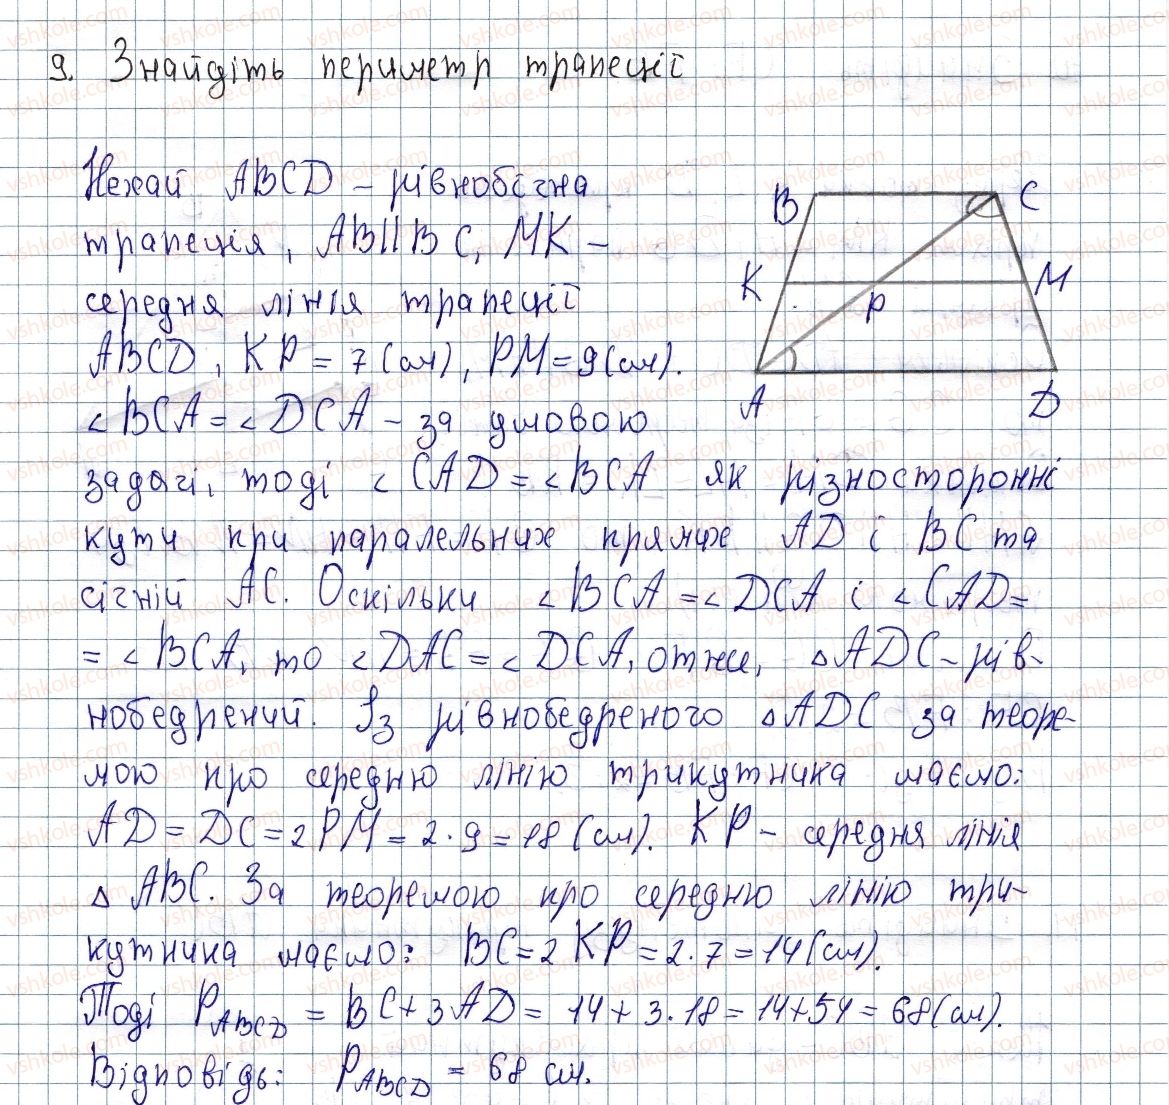 9. Знайдіть периметр трапеції
Нехай ABCD – рівнобічна
трапеція, AB||BC, MK –
середня лінія трапеції
ABCD, KP = 7 (см), PM = 9 (см).
∠BCA = ∠DCA – за умовою
задачі, тоді ∠CAD = ∠BCA як різносторонні
кути при паралельних прямих AD і BC та
січній AC. Оскільки ∠BCA = ∠DCA і ∠CAD =
= ∠BCA, то ∠DAC = ∠DCA, отже, △ADC – рів-
нобедрений. Із рівнобедреного △ADC за теоре-
мою про середню лінію трикутника маємо:
AD = DC = 2PM = 2·9 = 18 (см). KP – середня лінія
△ABC. За теоремою про середню лінію три-
кутника маємо: BC = 2KP = 2·7 = 14 (см).
Тоді P_ABCD = BC + 3AD = 14 + 3·18 = 14 + 54 = 68 (см).
Відповідь: P_ABCD = 68 см.
B C
K P M
A D
vshkole.com